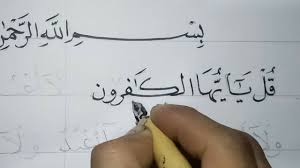 بِسْمِ اللَّهِ الرَّحْمَٰنِ
قُلْ يَا أَيُّهَا الْكَافِرُونَ